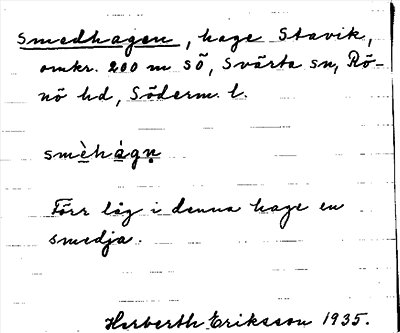 Smedhagen, hage Stavik,
omkr. 200 m SÖ, Svärta sn, Rö-
nö hd, Söderm. l.
smèhàgn̥
Förr låg i denna hage en
smedja.
Herberth Eriksson 1935.